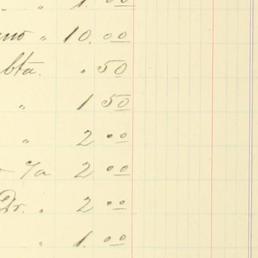 " 1.00
" 10.00
bta. .50
" 1 50
" 2 00
c/a 2 00
Dr. " 2 00
" 1.00